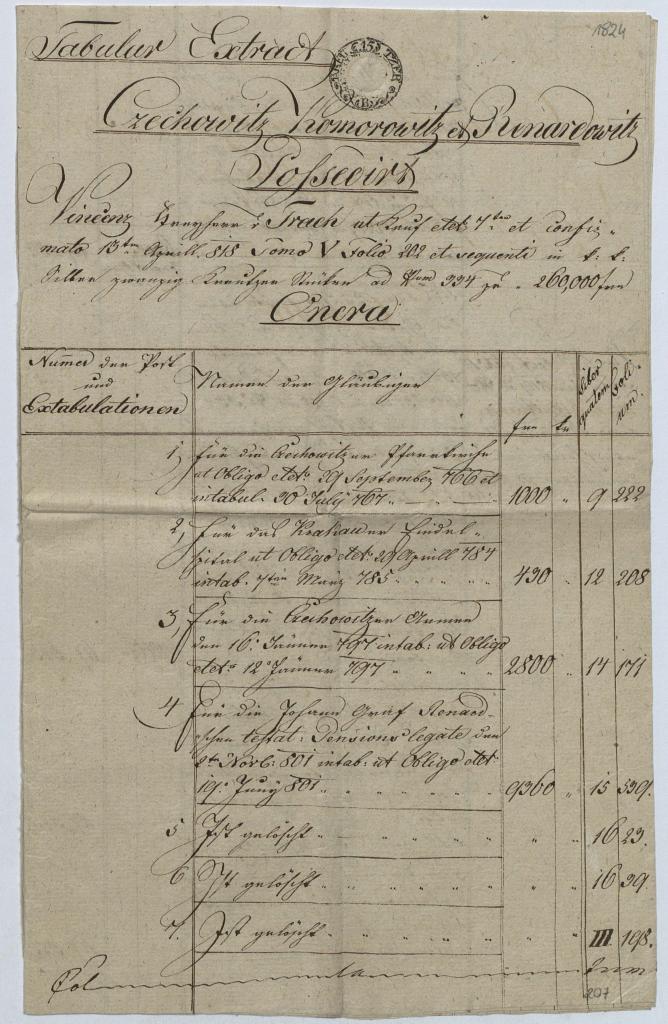 1824
Tabular Extract
15
Czechowitz Komorowitz et Renardowitz
Possedirt
Vincenz Freyherr v Trach ut Kauf dctto 7ten et confir-
mato 13ten Aprill 818 Tomo V Folio 202 et sequenti in k: k:
Silber zwanzig Kreutzer Stücken ad Num 334 pr „ 260,000 frn
Onera
Numer der Post
und
Extabulationen
Namen der Gläubiger
frn
kr
Liber
quatern
Foli-
um.
1, Für die Czechowitzer Pfarrkirche
ut Obligo dcto 29 September 766 et
intabul. 30 July 767 „ 1000 „ 9 222
2, Für das Krakauer Findel-
spital ut Obligo dcto 29 Aprill 784
intab. 7ten März 785 „ 430 „ 12 208
3, Für die Czechowitzer Armen
den 16. Jänner 797 intab: ut Obligo
dcto 12 Jänner 797 „ 2800 „ 14 171
4 Für die Johann Graf Renard-
schen testat: Pensions legate den
Novb: 801 intab: ut Obligo dcto
19. Juny 801 „ 9360 „ 15 539.
5 Ist gelöscht „ „ 16 23.
6 Ist gelöscht „ „ 16 39.
7. Ist gelöscht „ „ III 198.
207